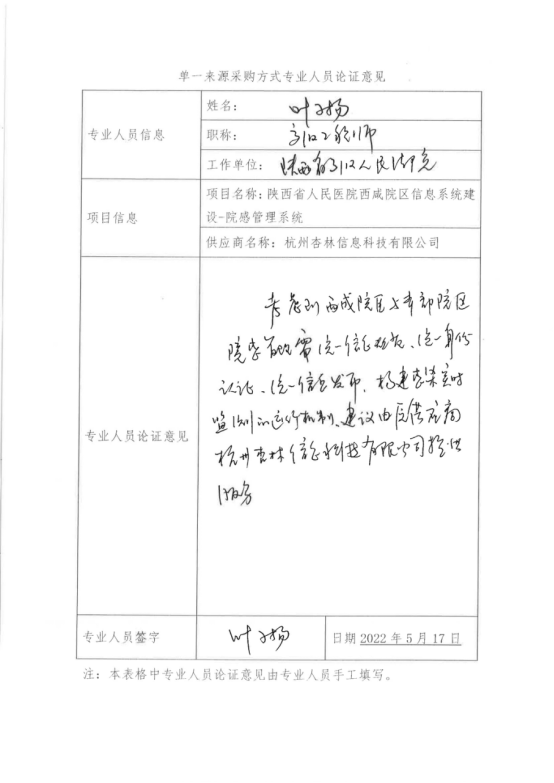 单一来源采购方式专业人员论证意见
专业人员信息
姓名：
职称：
工作单位：
项目信息
项目名称：陕西省人民医院西咸院区信息系统建
设-院感管理系统
供应商名称：杭州杏林信息科技有限公司
专业人员论证意见
考虑到西咸院区与本部院区
院感管理需统一信息标准、统一身份
认证、统一信息发布、构建感染实时
监测的运行机制、建议由原供应商
杭州杏林信息科技有限公司提供
服务
专业人员签字
日期 2022 年 5 月 17 日
注：本表格中专业人员论证意见由专业人员手工填写。